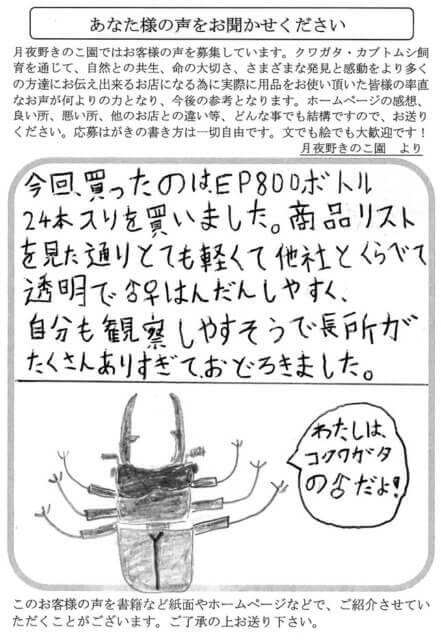 あなた様の声をお聞かせください
月夜野きのこ園ではお客様の声を募集しています。クワガタ・カブトムシ飼
育を通じて、自然との共生、命の大切さ、さまざまな発見と感動をより多く
の方達にお伝え出来るお店になる為に実際に用品をお使い頂いた皆様の率直
なお声が何よりの力となり、今後の参考となります。ホームページの感想、
良い所、悪い所、他のお店との違い等、どんな事でも結構ですので、お送り
ください。応募はがきの書き方は一切自由です。文でも絵でも大歓迎です！
月夜野きのこ園　より
今回、買ったのはEP800ボトル
24本入りを買いました。商品リスト
を見た通りとても軽くて他社とくらべて
透明で♂♀はんだんしやすく、
自分も観察しやすそうで長所が
たくさんありすぎて、おどろきました。
わたしは、
コクワガタ
の♂だよ!
このお客様の声を書籍など紙面やホームページなどで、ご紹介させてい
ただくことがございます。ご了承の上お送り下さい。